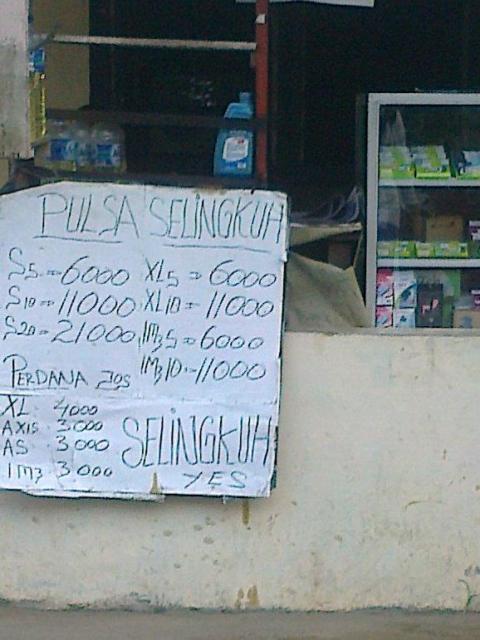 PULSA SELINGKUH
S5 = 6000 XL5 = 6000
S10 = 11000 XL10 = 11000
S20 = 21000 IM35 = 6000
PERDANA JOS IM310 = 11000
XL 4000
AXIS 3.000
AS 3.000
IM3 3.000
SELINGKUH
YES